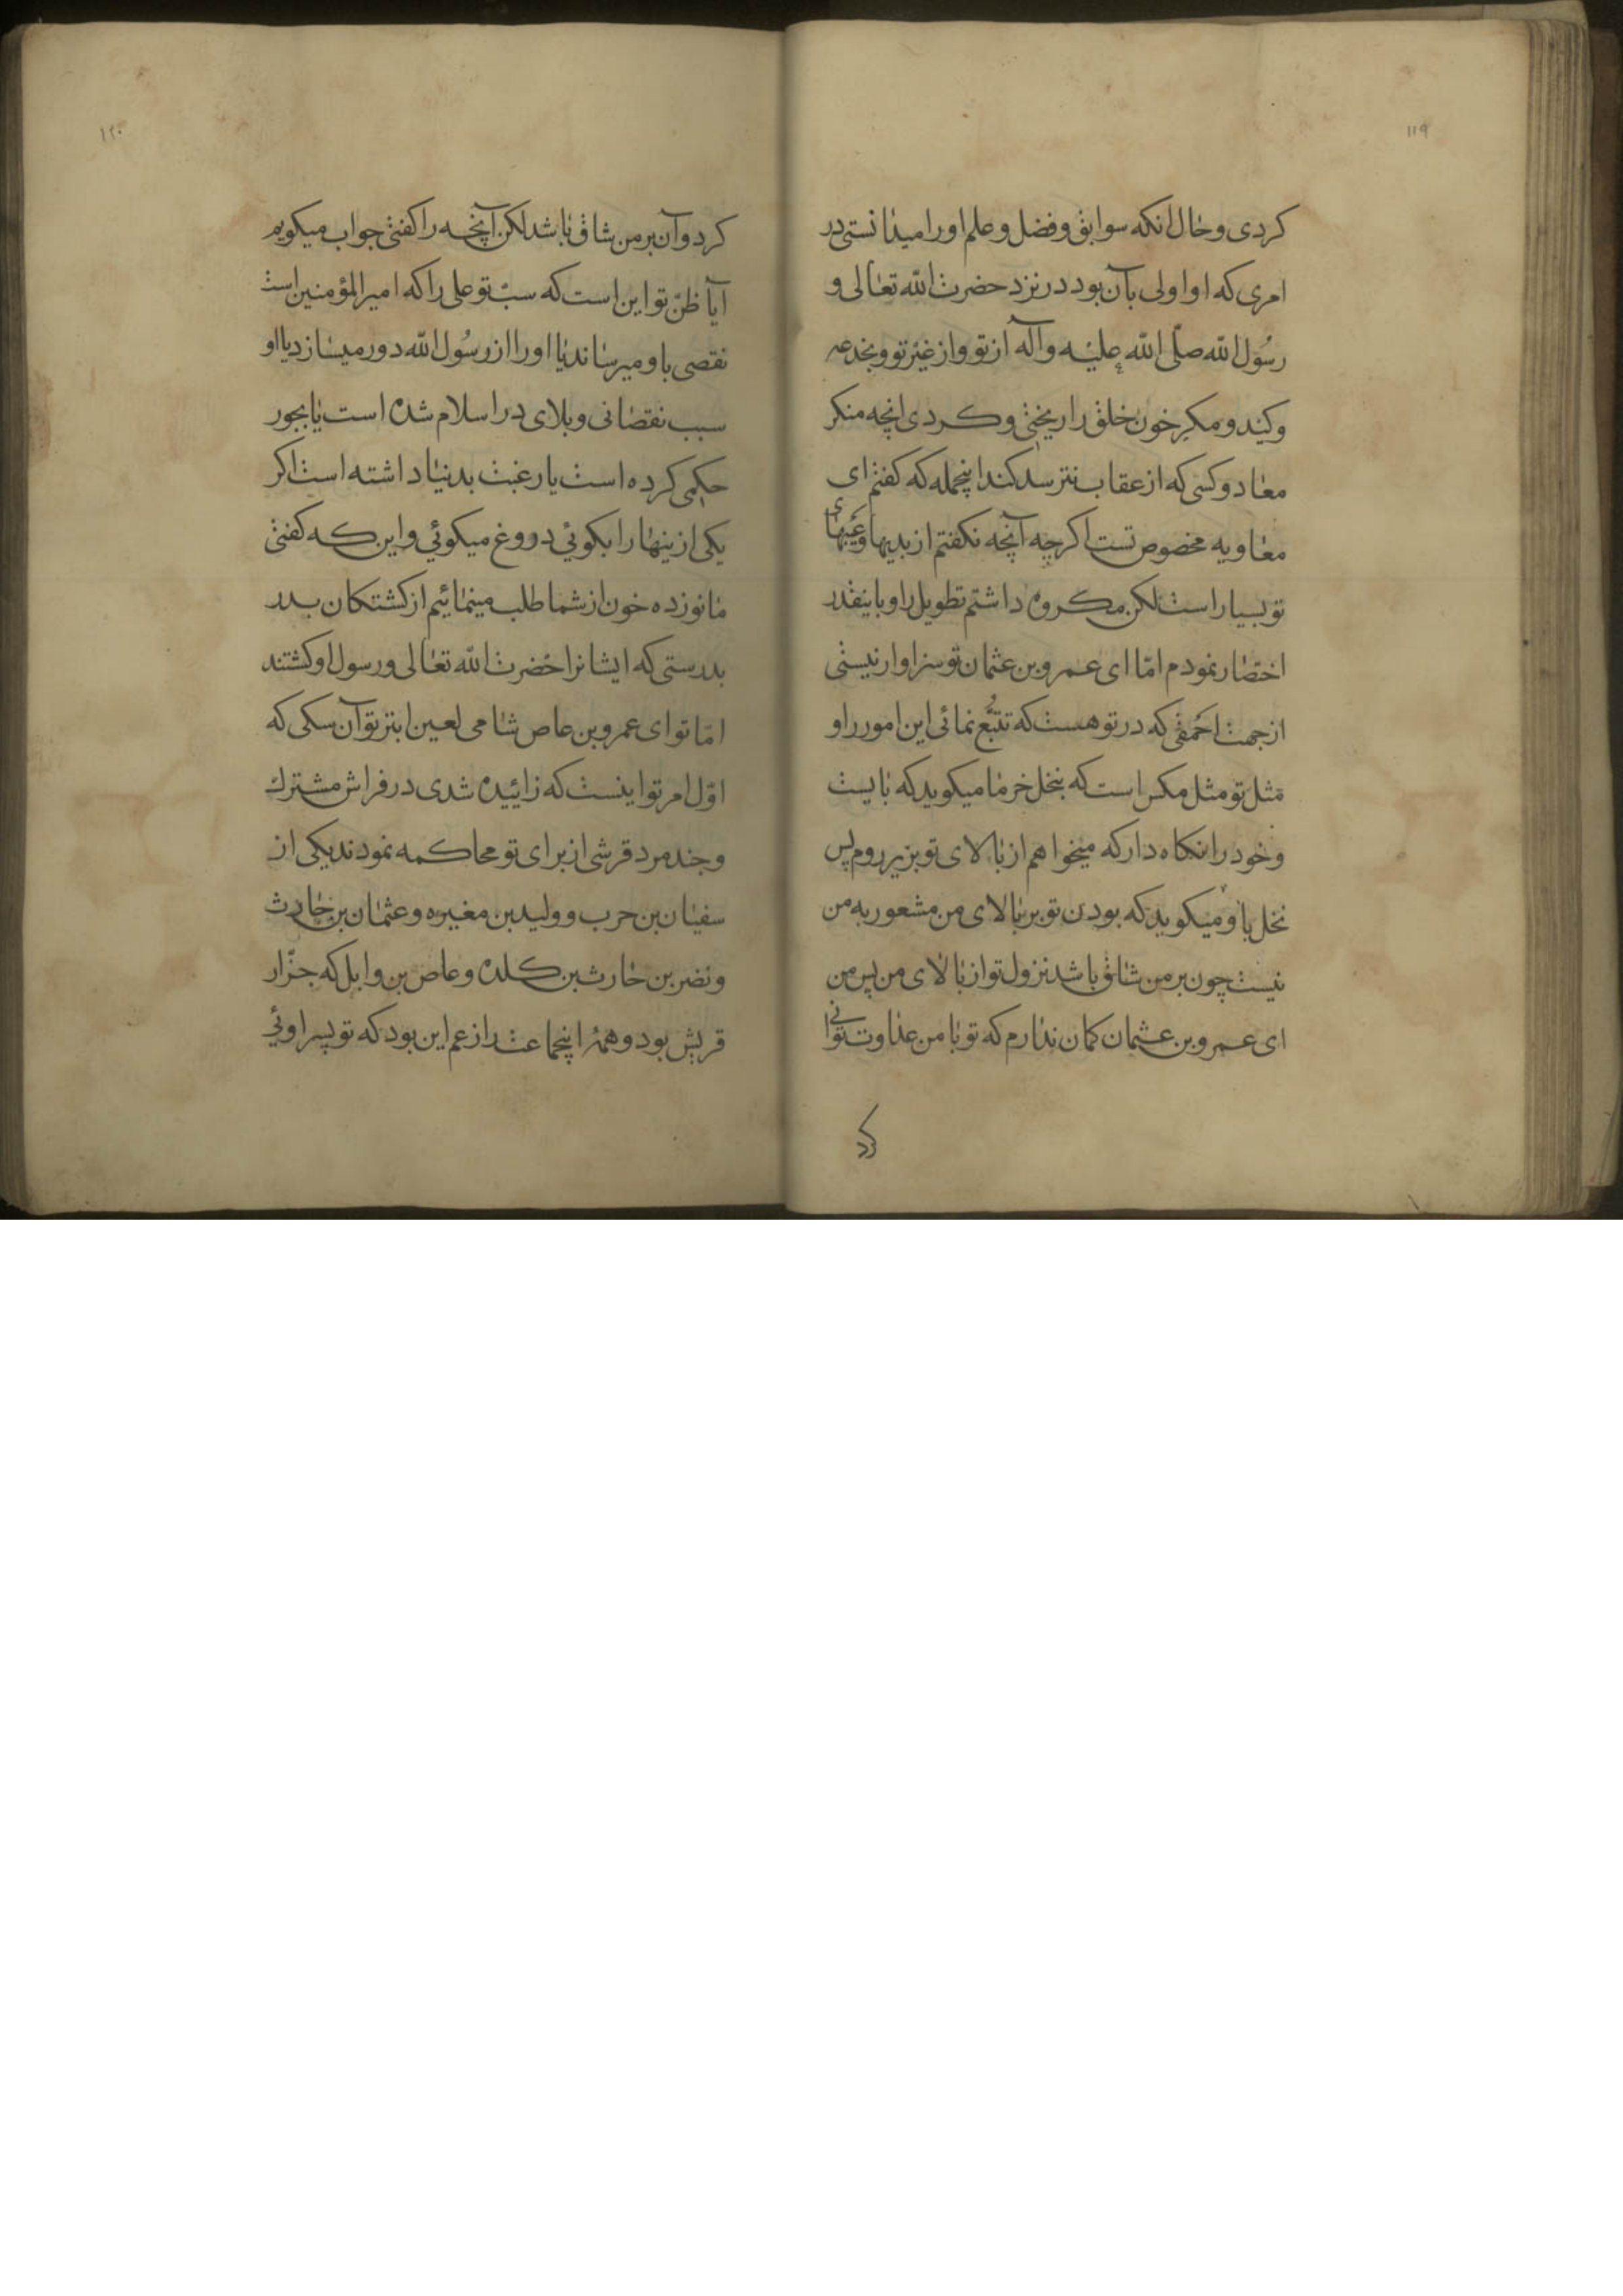 ۱۱۹
كردی و حال انكه سوابق و فضل و علم او را میدانستی در
امری كه او اولی بآن بود در نزد حضرت الله تعالی و
رسُول الله صلّی الله علیه و آله از تو و از غیر تو و بخدعه
و كید و مكر خون خلق را ریختی و كردی انچه منكر
معاد و كسی كه از عقاب نترسد كند اینجمله كه كفتم ای
معاویه مخصوص تست اكرچه آنچه نكفتم از بدیها و عیبهای
تو بسیار است لكن مكروه داشتم تطویل را و باینقدر
اختصار نمودم امّا ای عمرو بن عثمان تو سزاوار نیستی
از جهت احمقی كه در تو هست كه تتبُّع نمائی این امور را و
مثل تو مثل مكس است كه بنخل خرما میكوید كه بایست
و خود را نكاه دار كه میخواهم از بالای تو بزیر روم پس
نخل باو میكوید كه بودن تو بر بالای من مشعور به من
نیست چون بر من شاق باشد نزول تو از بالای من پس من
ای عمرو بن عثمان كمان ندارم كه تو با من عداوت توانی
كرد
۱۲۰
كرد و آن بر من شاق باشد لكن آنچه را كفتی جواب میكویم
آیا ظنّ تو این است كه سبّ تو علی را كه امیر المؤمنین است
نقصی باو میرساند یا او را از رسُول الله دور میسازد یا او
سبب نقصانی و بلای در اسلام شده است یا بجور
حكمی كرده است یا رغبت بدنیا داشته است اكر
یكی از ینها را بكوئی دروغ میكوئی و این كه كفتی
ما نوزده خون از شما طلب مینمائیم از كشتكان بدر
بدرستی كه ایشانرا حضرت الله تعالی و رسول او كشتند
امّا تو ای عمرو بن عاص شامی لعین ابتر تو آن سكی كه
اوّل امر تو اینست كه زائیده شدی در فراش مشترك
و چند مرد قرشی از برای تو محاكمه نمودند یكی از
سفیان بن حرب و ولید بن مغیره و عثمان بن حارث
و نضر بن حارث بن كلده و عاص بن وابل كه جزّار
قریش بود و همهٔ اینجماعت را زعم این بود كه تو پسر اوئی